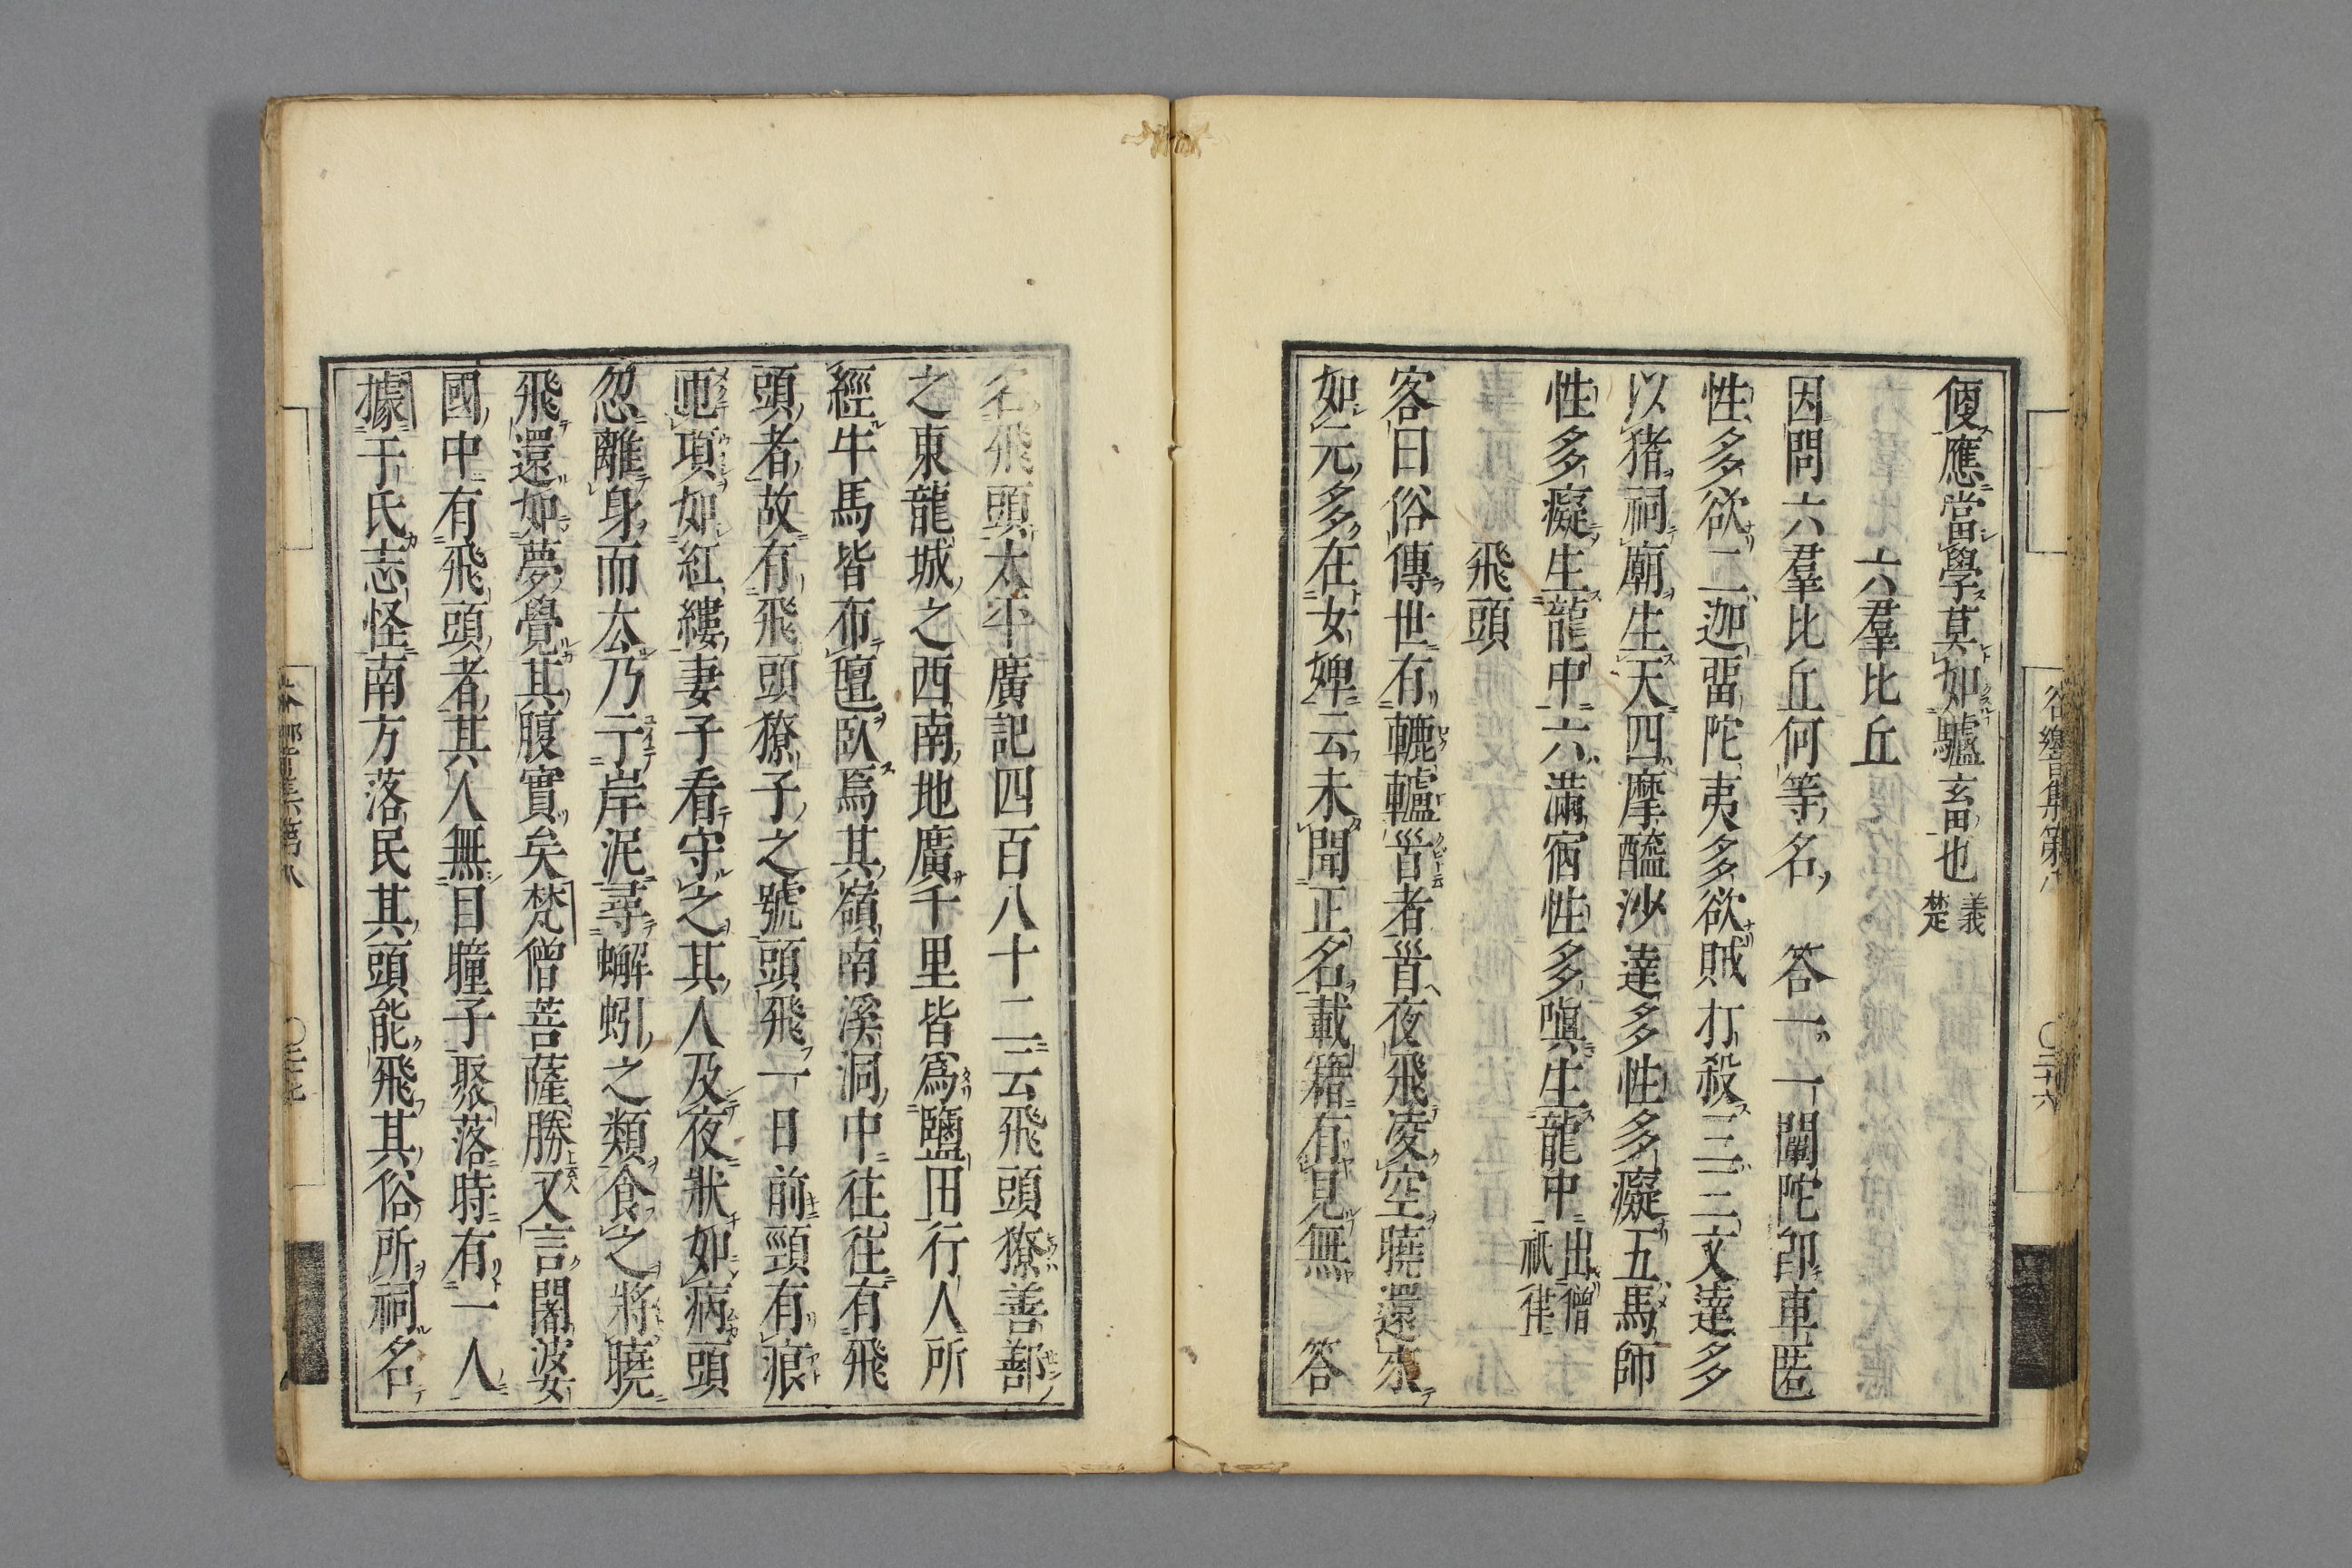 便應當學莫如驢玄畜也義楚
六羣比丘
因問六羣比丘何等名 答一一闡陀卽車匿
性多欲二迦畱陀夷多欲賊打殺三三文達多
以猪祠廟生天四摩醯沙達多性多癡五馬師
性多癡生龍中六滿宿性多嗔生龍中出僧祇律
飛頭
客曰俗傳世有轆轤首者首夜飛凌空曉還來
如元多在女婢云未聞正名載籍有見無 答
名飛頭太平廣記四百八十二云飛頭獠善鄯
之東龍城之西南地廣千里皆爲鹽田行人所
經牛馬皆布氊臥焉其嶺南溪洞中往往有飛
頭者故有飛頭獠子之號頭飛一日前頸有痕
匝項如紅縷妻子看守之其人及夜狀如病頭
忽離身而去乃于岸泥尋蠏蚓之類食之將曉
飛還如夢覺其腹實矣梵僧菩薩勝又言闍婆
國中有飛頭者其人無目瞳子聚落時有一人
據于氏志怪南方落民其頭能飛其俗所祠名
谷響集第八 〇三十六
谷響集第八 〇三十七